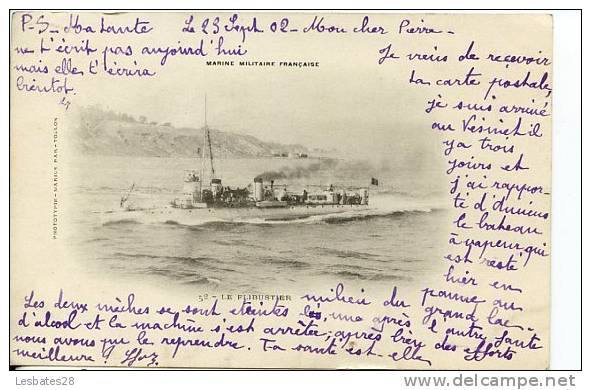 P-S- Ma tante
ne t'écrit pas aujourd'hui
mais elle t'écrira
bientôt.
Le 23 Sept 02 - Mon cher Pierre -
Je viens de recevoir
ta carte postale,
je suis arrivé
au Vésinet il
y a trois
jours et
j'ai rappor-
té d'Annecy
le bateau
à vapeur qui
est resté
hier en
panne au
milieu du grand lac -
Les deux mèches se sont éteintes une après l'autre faute
d'alcool et la machine s'est arrêtée; après des efforts
nous avons pu le reprendre. Ta santé est-elle
meilleure?
MARINE MILITAIRE FRANÇAISE
PHOTOTYPIE-MARIUS BAR-TOULON
52 - LE FLIBUSTIER
Lesbates28
www.delcampe.net